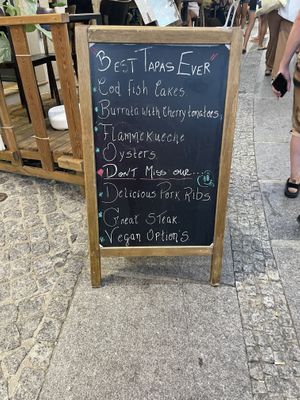 Best Tapas Ever
Cod fish Cakes.
Burrata with Cherry tomatoes,
Flammekueche
Oysters.
Don't Miss our...
Delicious Pork Ribs
Great Steak.
Vegan Option's.